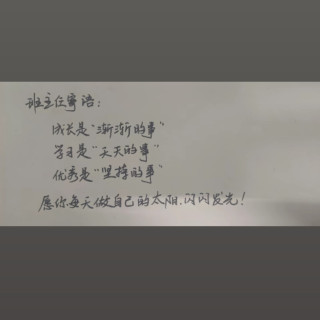 班主任寄语：
成长是“渐渐的事”
学习是“天天的事”
优秀是“坚持的事”
愿你每天做自己的太阳，闪闪发光！